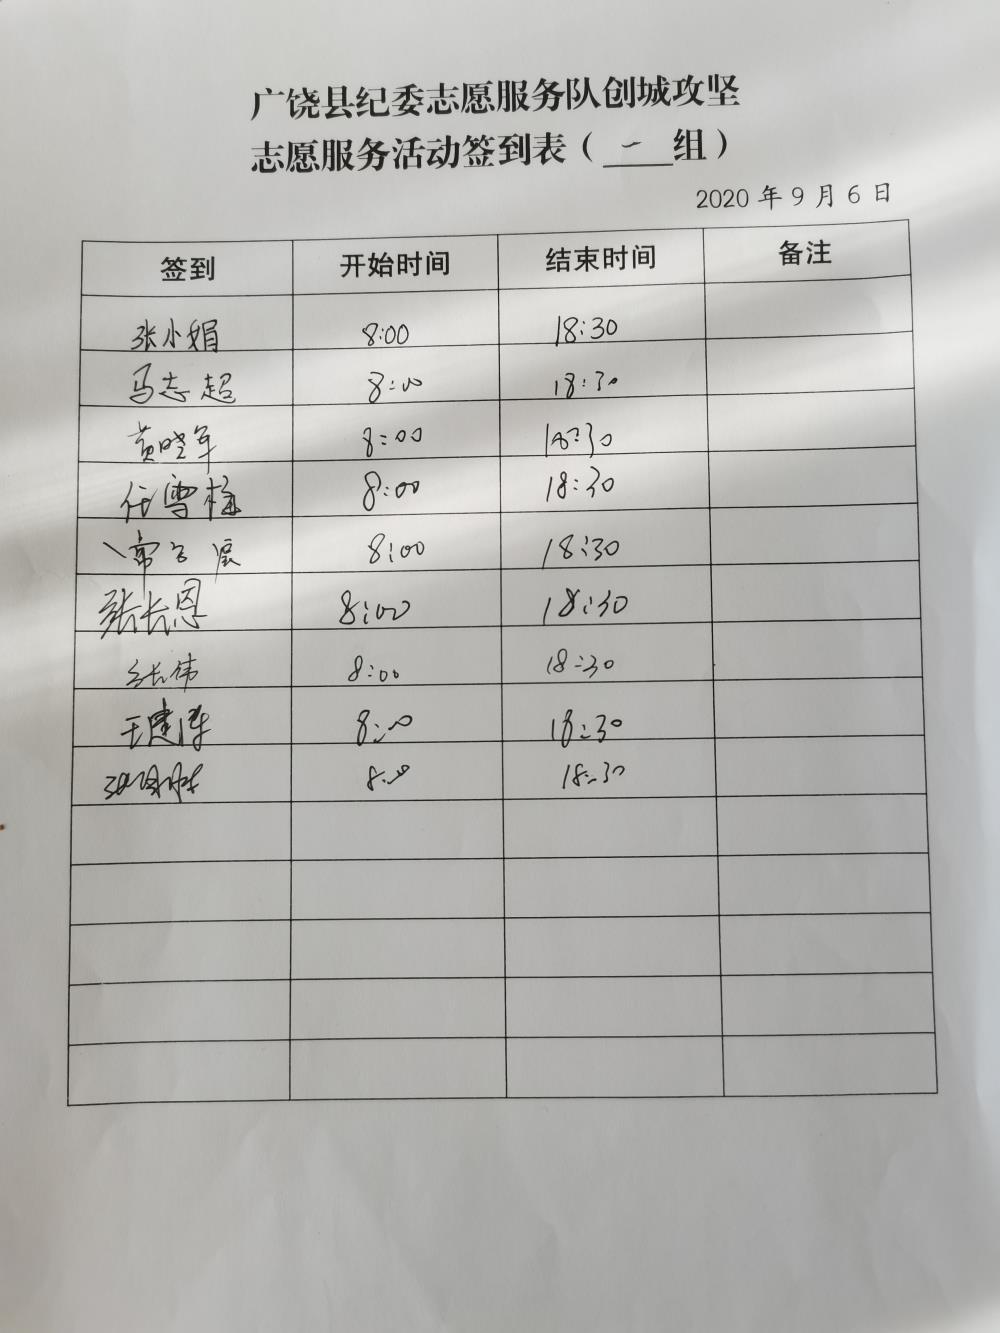 广饶县纪委志愿服务队创城攻坚
志愿服务活动签到表（一组）
2020年9月6日
签到 开始时间 结束时间 备注
张小娟 8:00 18:30
马志超 8:00 18:30
黄晓军 8:00 18:30
任雪梅 8:00 18:30
8:00 18:30
张长恩 8:00 18:30
伟 8:00 18:30
王建 8:00 18:30
8:00 18:30